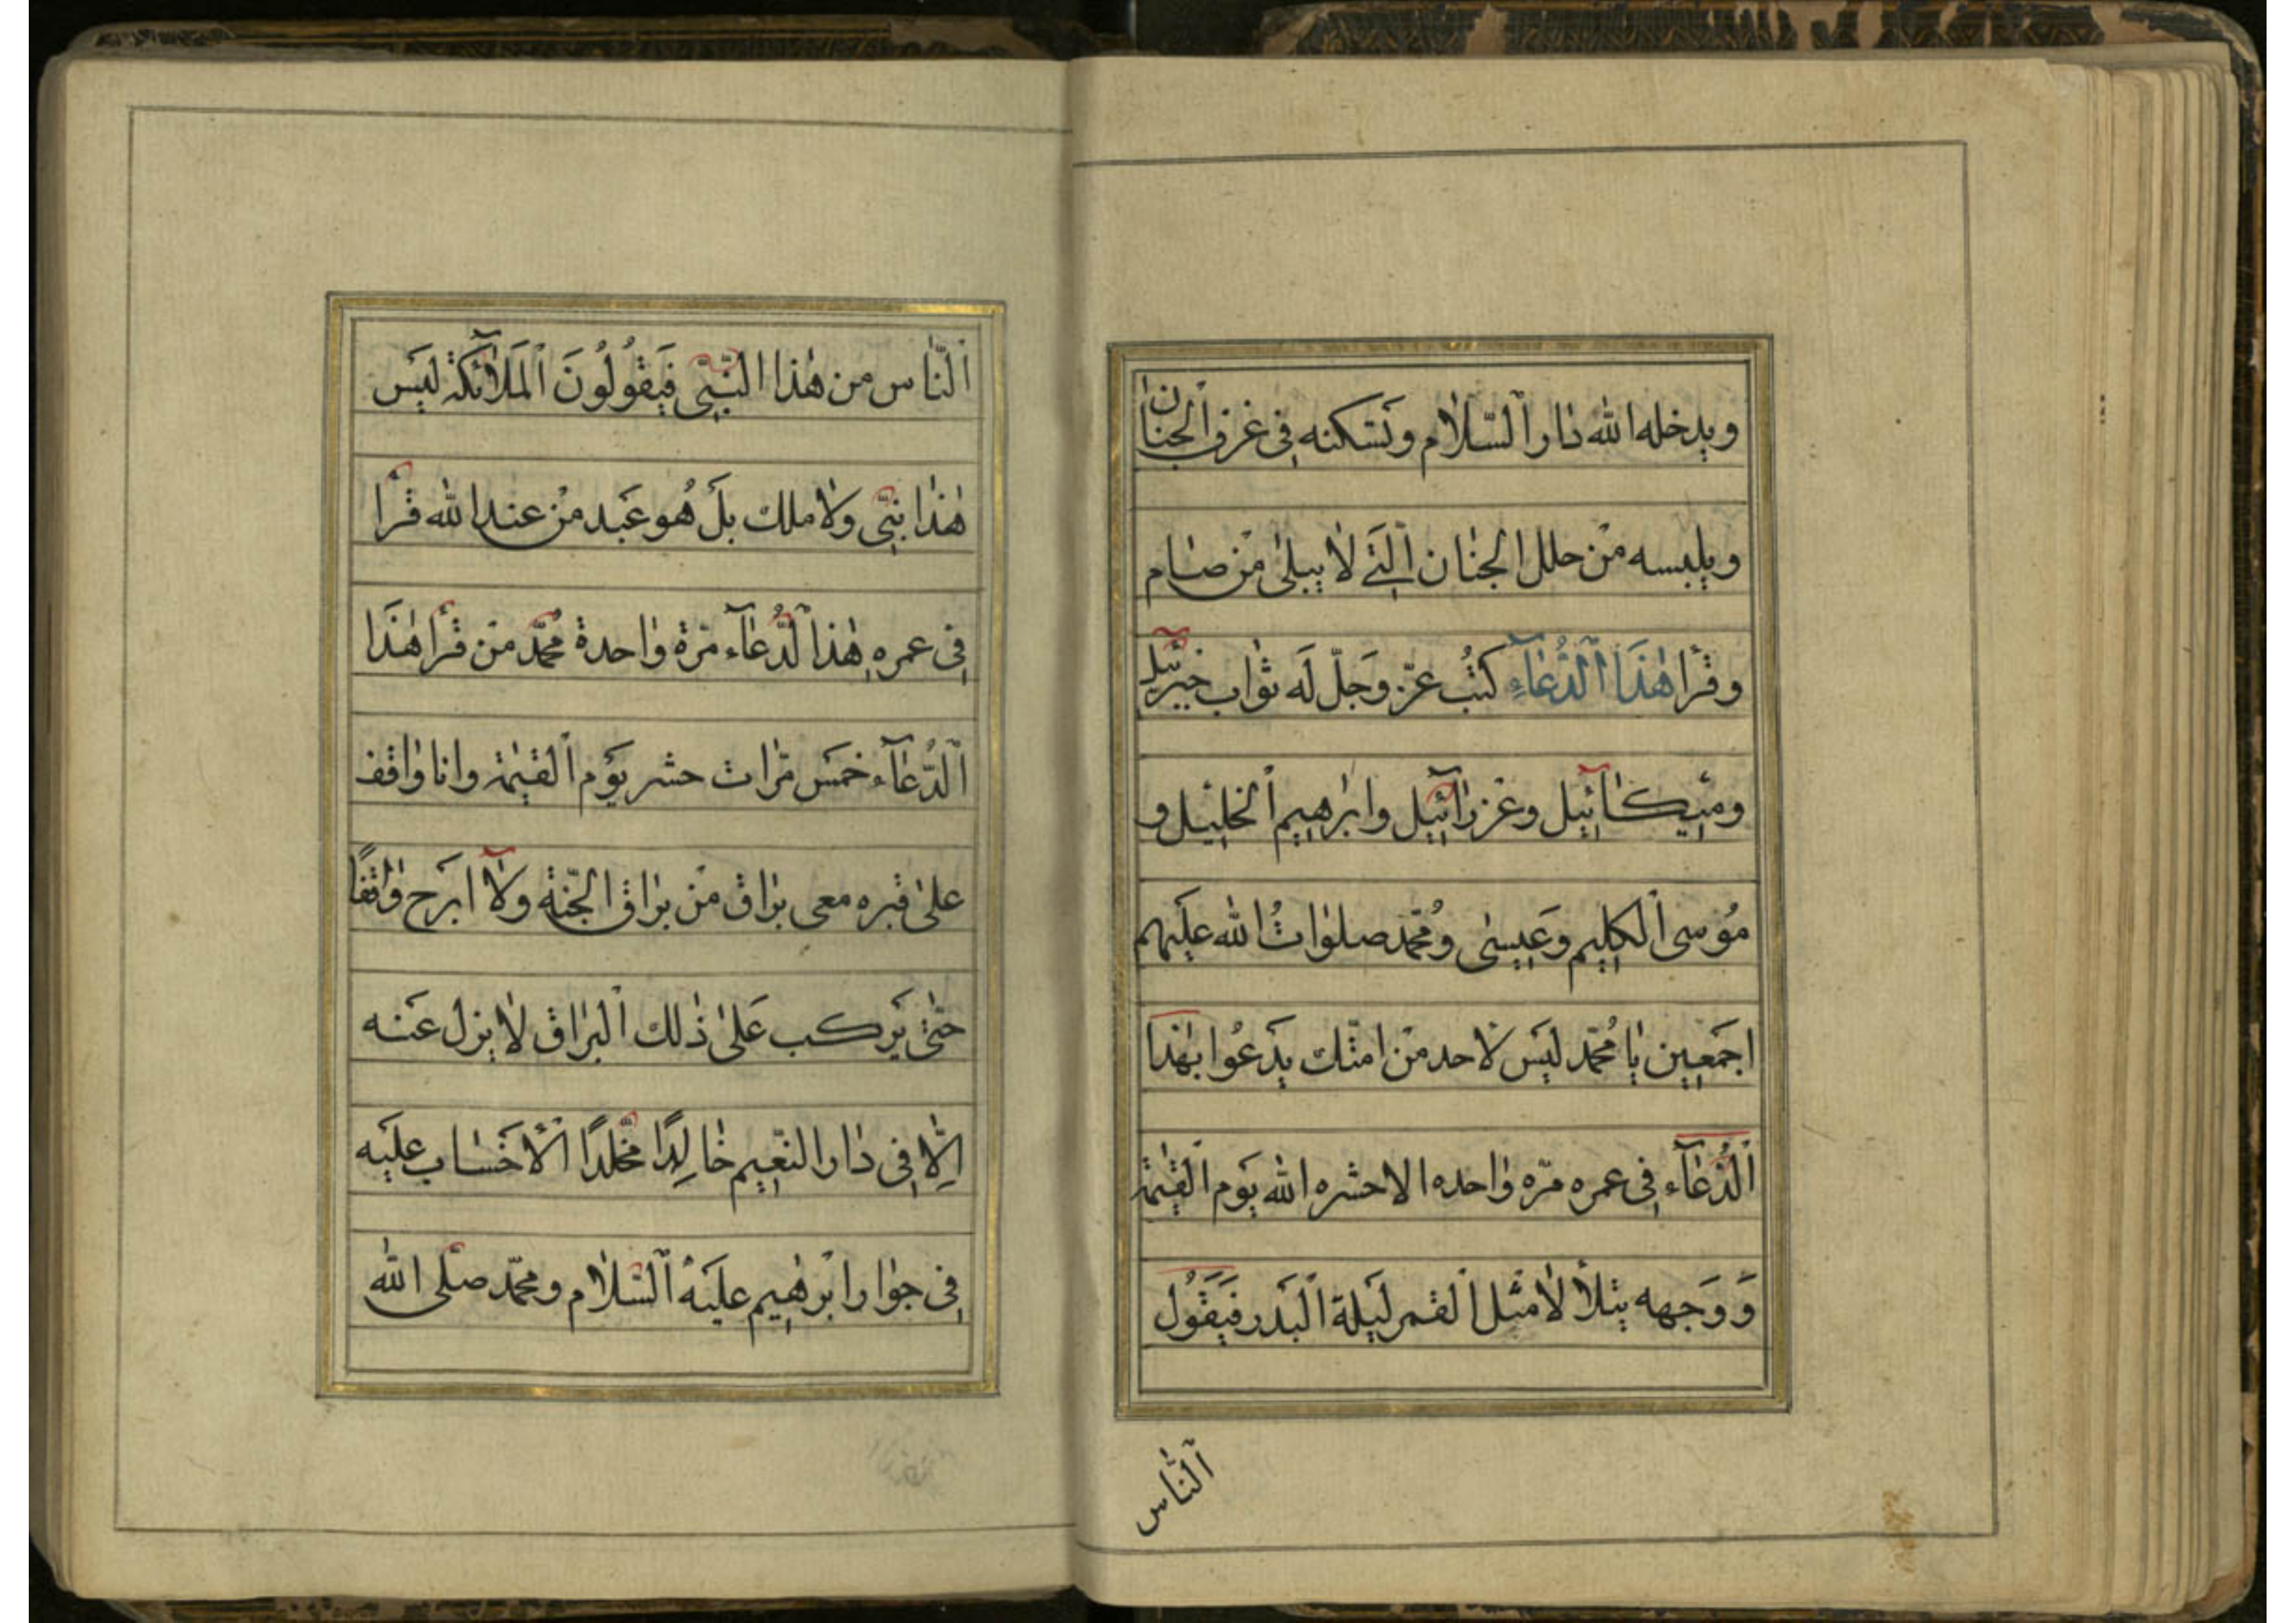 ويدخله الله دار السّلام وتسكنه فى غرف الجنان
ويلبسه من حلل الجنان الّتى لا يبلى من صام
وقرأ هٰذا الدُّعاءِ كتب عزّ وجلّ له ثواب جبرئيل
وميكائيل وعزرائيل وابرهيم الخليل و
مُوسى الكليم وعيسى ومُحمّد صلوات الله عليهم
اجمعين يا مُحمّد ليس لاحد من امتك يدعُوا بهٰذا
الدُّعآء فى عمره مرّه واحده الا حشره الله يوم القيٰمة
وَوَجهه يتلألأ مثل القمر ليلة البدر فيقُول
النّاس
النّاس من هٰذا النّبىّ فيقُولُونَ المَلائكة ليس
هٰذا نبىّ ولا ملك بل هُو عبد من عند الله قرأ
فى عمره هٰذا الدُّعآء مرّة واحدة محمّد من قرأ هٰذا
الدُّعآء خمس مرّات حشر يوم القيٰمة وانا واقف
علىٰ قبره معى براق من براق الجنّة ولا ابرح واقفًا
حتّىٰ يركب علىٰ ذٰلك البراق لا ينزل عنه
اِلّا فى دار النّعيم خالِدًا مخلّدًا الا حساب عليه
فى جوار ابرٰهيم عليهُ السّلام ومحمّد صلّى الله